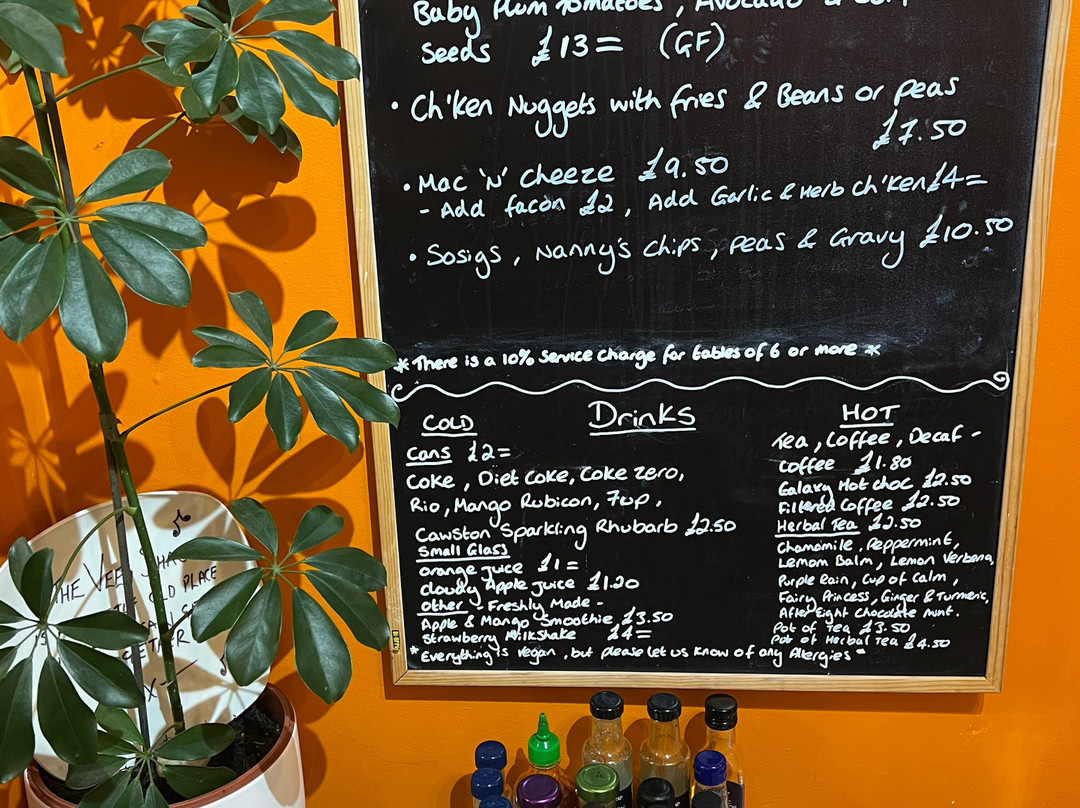 Baby Plum Tomatoes, Avocado &
Seeds £13= (GF)
• Ch'ken Nuggets with fries & Beans or peas
£7.50
• Mac 'N' Cheeze £9.50
- Add facon £2, Add Garlic & Herb ch'ken £4=
• Sosigs, Nanny's chips, peas & Gravy £10.50
*There is a 10% Service charge for tables of 6 or more *
Drinks
COLD
Cans £2=
Coke, Diet Coke, Coke zero,
Rio, Mango Rubicon, 7up,
Cawston Sparkling Rhubarb £2.50
Small Glass
orange juice £1=
cloudy Apple juice £1.20
other - Freshly Made -
Apple & Mango Smoothie £3.50
Strawberry Milkshake £4=
HOT
Tea, Coffee, Decaf -
Coffee £1.80
Galaxy Hot choc £2.50
Filtered Coffee £2.50
Herbal Tea £2.50
Chamomile, Peppermint,
Lemon Balm, Lemon Verbena,
Purple Rain, Cup of Calm,
Fairy Princess, Ginger & Turmeric,
After Eight Chocolate Mint.
Pot of Tea £3.50
Pot of Herbal Tea £4.50
*Everything is vegan, but please let us know of any Allergies*
THE
OLD PLACE